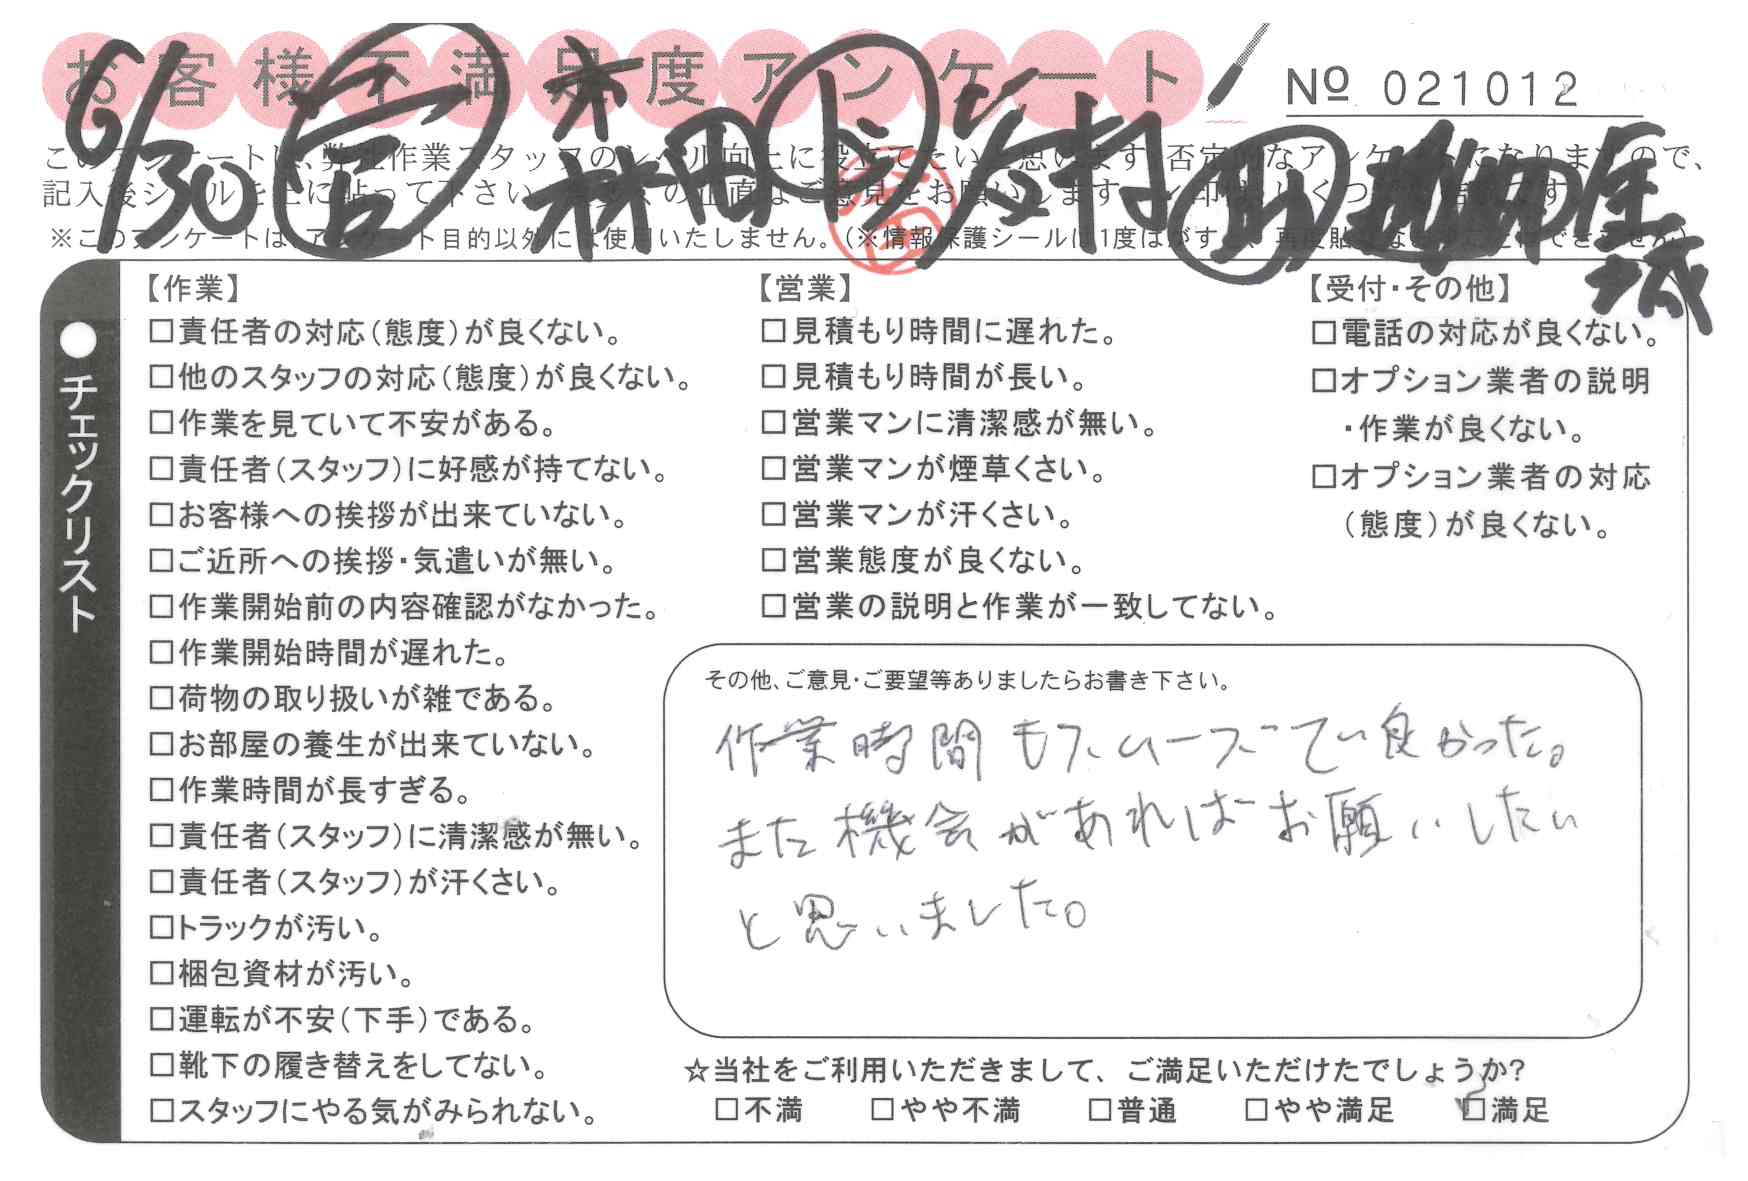 お客様不満足度アンケート
№ 021012
6/30
※このアンケートは、アンケート目的以外には使用いたしません。(※情報保護シールは1度はがすと、再度貼
チェックリスト
【作業】
□責任者の対応(態度)が良くない。
□他のスタッフの対応(態度)が良くない。
□作業を見ていて不安がある。
□責任者(スタッフ)に好感が持てない。
□お客様への挨拶が出来ていない。
□ご近所への挨拶・気遣いが無い。
□作業開始前の内容確認がなかった。
□作業開始時間が遅れた。
□荷物の取り扱いが雑である。
□お部屋の養生が出来ていない。
□作業時間が長すぎる。
□責任者(スタッフ)に清潔感が無い。
□責任者(スタッフ)が汗くさい。
□トラックが汚い。
□梱包資材が汚い。
□運転が不安(下手)である。
□靴下の履き替えをしてない。
□スタッフにやる気がみられない。
【営業】
□見積もり時間に遅れた。
□見積もり時間が長い。
□営業マンに清潔感が無い。
□営業マンが煙草くさい。
□営業マンが汗くさい。
□営業態度が良くない。
□営業の説明と作業が一致してない。
【受付・その他】
□電話の対応が良くない。
□オプション業者の説明
・作業が良くない。
□オプション業者の対応
(態度)が良くない。
その他、ご意見・ご要望等ありましたらお書き下さい。
作業時間もスムーズで良かった。
また機会があればお願いしたい
と思いました。
☆当社をご利用いただきまして、ご満足いただけたでしょうか?
□不満 □やや不満 □普通 □やや満足 □満足